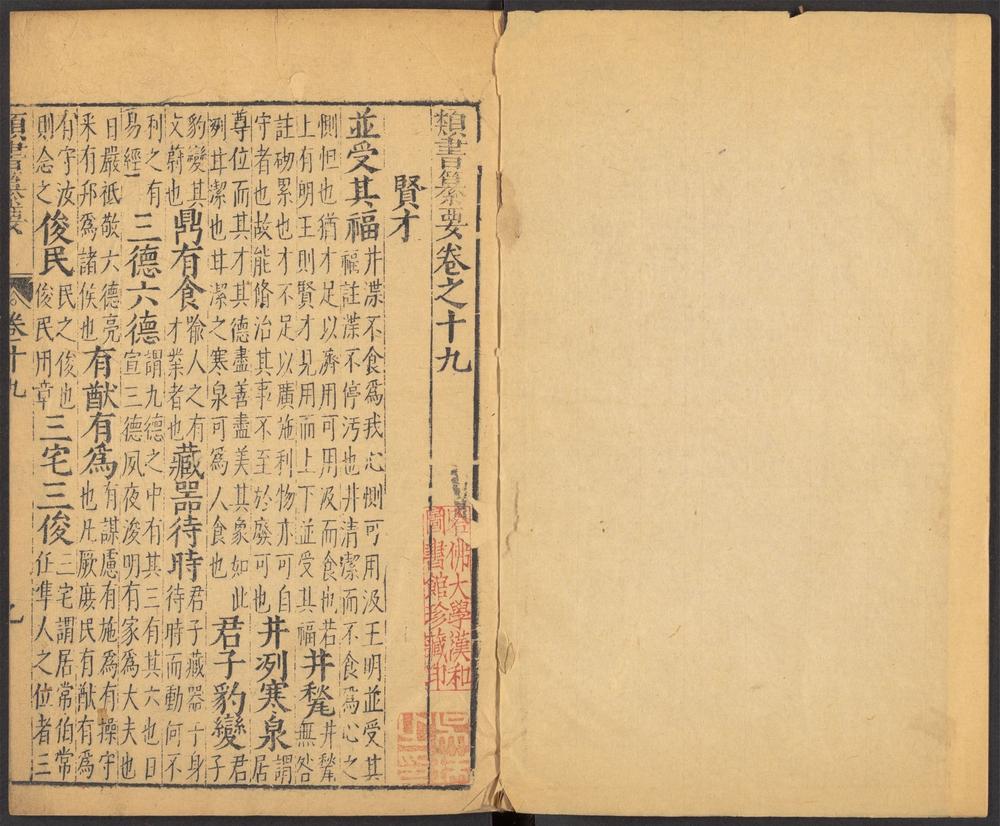 類書纂要卷之十九
賢才
並受其福 井渫不食爲我心惻可用汲王明並受其
福註渫不停汚也井清潔而不食爲心之
惻怛也猶才足以濟用可用汲而食也若
上有明王則賢才見用而上下並受其福 井甃 井甃無咎
註砌累也才不足以廣施利物亦可自
守者也故能脩治其事不至於廢可也 井冽寒泉 謂居
尊位而其才其德盡善盡美其象如此
冽甘潔也甘潔之寒泉可爲人食也 君子豹變 君子
豹變其文蔚也 鼎有食 猶人之有才業者也 藏器待時 君子藏器于身待時而動何不
利之有易經 三德六德 謂九德之中有其三有其六也日宣三德夙夜浚明有家爲大夫也
日嚴祗敬六德亮采有邦爲諸侯也 有猷有爲 有謀慮有施爲有操守也凡厥庶民有猷有爲
有守汝則念之 俊民 民之俊也俊民用章 三宅三俊 三宅謂居常伯常任準人之位者三
類書纂要 卷十九
哈佛大學漢和
圖書館珍藏印